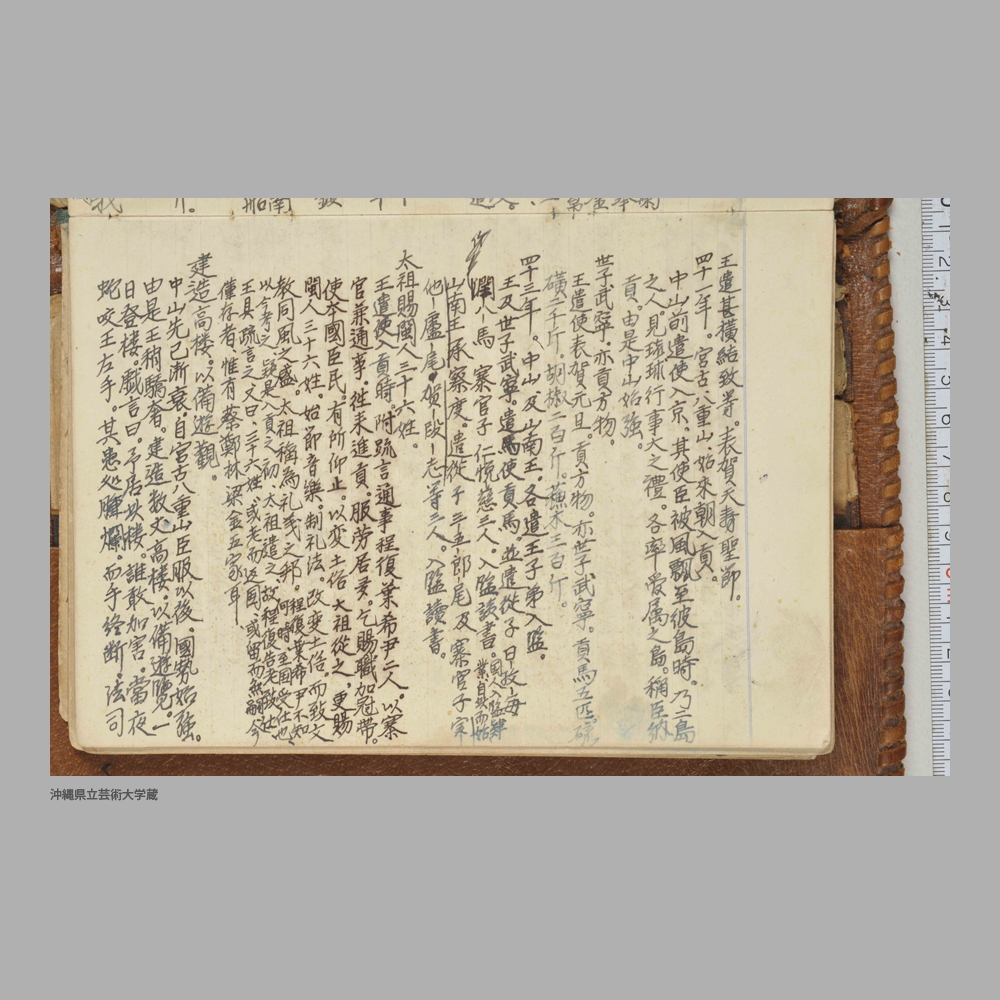 王遣甚横結致等。表賀天寿聖節。
四十一年。宮古八重山始來朝入貢。
中山前遣使入京、其使臣被風飄至彼島時。乃二島
之人見琉球行事大之禮。各率管属之島。稱臣納
貢。由是中山始強。
世子武寧。亦貢方物。
王遣使表賀元旦。貢方物。亦世子武寧。貢馬五匹硫
磺二千斤。胡椒二百斤。蘇木三百斤。
四十三年。中山及山南王、各遣王子弟入監。
王及世子武寧。遣馬使貢馬。並遣従子日孜毎
濶八馬 寨官子仁悦慈三人。入監読書。國人入監肄
業自此而始
山南王承察度。遣従子三五郎尾及寨官子実
他盧尾賀段志等三人。入監讀書。
太祖賜閩人三十六姓。
王遣使貢時。附疏言通事程復葉希尹二人。以寨
官兼通事。往来進貢。服労居多。乞賜職加冠帯。
使本國臣民。有所仰止。以変土俗。太祖従之。更賜
閩人三十六姓。始節音樂。制礼法。改変土俗。而致文
教同風之盛。太祖稱為礼義之邦。何時至国受仕也
以今考之、疑是入貢之初、太祖遣之。故程復告老
王具疏言之。又曰、三十六姓、或老而返國、或留而無嗣。今
僅存者、惟有蔡鄭林梁金五家耳
建造高樓。以備遊觀。
中山先已漸衰。自宮古八重山臣服以後。國勢始強。
由是王稍驕奢。建造数丈高樓。以備遊覽。一
日登樓。戯言曰。予居此樓。誰敢加害。當夜
蛇咬王左手。其患処膿爛。而手終断。法司
沖縄県立芸術大学蔵